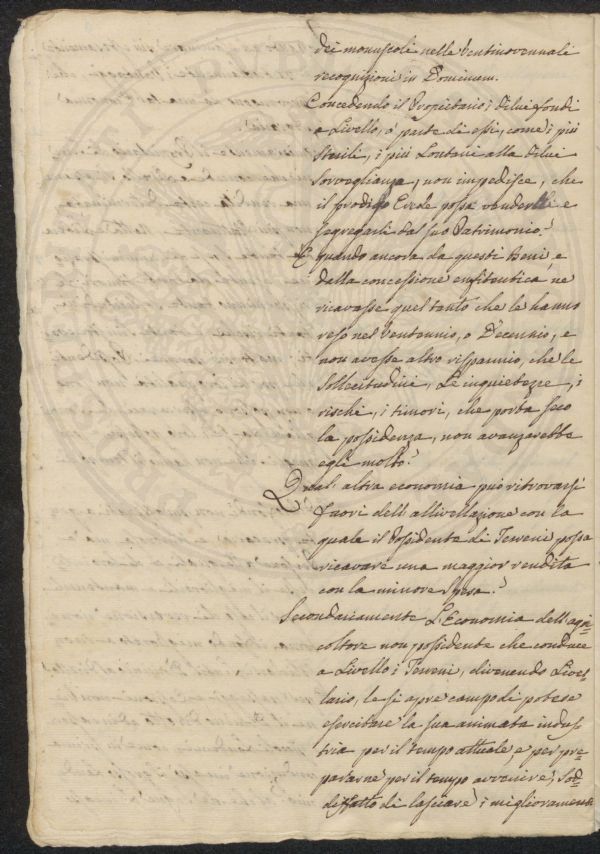 dei monuscoli nelle Ventinovennali
recognizioni in Dominum.
Concedendo il Propietario i di lui fondi
a Livello, ò parte di essi, come i più
Sterili, i più Lontani alla di lui
Sorveglianza, non impedisce, che
il prodigo Erede possa venderli e
segregarli dal suo Patrimonio?
E quando ancora da questi Beni, e
dalla concessione enfiteutica ne
ricavasse quel tanto che le hanno
reso nel Ventennio, o Decennio, e
non avesse altro risparmio, che le
Sollecitudini, Le inquietezze, i
rischi, i timori, che porta seco
la possidenza, non avanzerebbe
egli molto?
Qual' altra economia può ritrovarsi
fuori dell' allivellazione con la
quale il Possidente di Terreni possa
ricavare una maggior rendita
con la minore Spesa?
Secondariamente L'Economia dell'agri=
coltore non possidente che conduce
a Livello i Terreni, divenendo Livel=
lario, le si apre campo di potere
esercitare la sua animata indus=
tria per il tempo attuale, e per pre=
pararne per il tempo avvenire, Sod=
disfatto di lasciare i miglioramenti